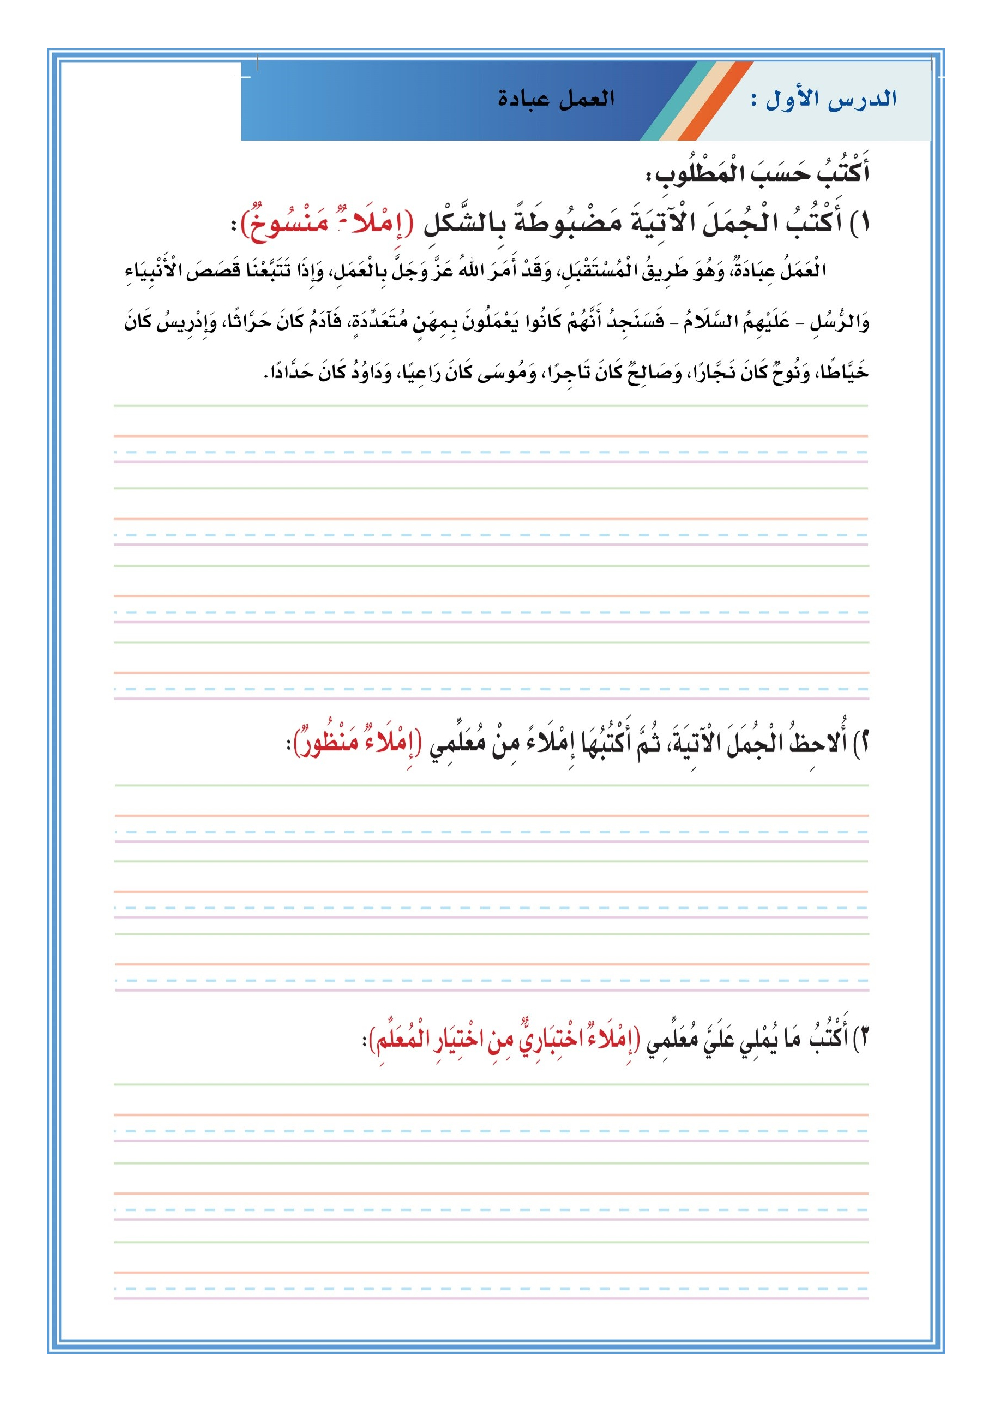 الدرس الأول : العمل عبادة
أَكْتُبُ حَسَبَ الْمَطْلُوبِ:
١) أَكْتُبُ الْجُمَلَ الْآتِيَةَ مَضْبُوطَةً بِالشَّكْلِ (إِمْلَاءٌ مَنْسُوخٌ):
الْعَمَلُ عِبَادَةٌ، وَهُوَ طَرِيقُ الْمُسْتَقْبَلِ، وَقَدْ أَمَرَ اللهُ عَزَّ وَجَلَّ بِالْعَمَلِ، وَإِذَا تَتَبَّعْنَا قَصَصَ الْأَنْبِيَاءِ
وَالرُّسُلِ – عَلَيْهِمُ السَّلَامُ – فَسَنَجِدُ أَنَّهُمْ كَانُوا يَعْمَلُونَ بِمِهَنٍ مُتَعَدِّدَةٍ، فَآدَمُ كَانَ حَرَّاثًا، وَإِدْرِيسُ كَانَ
خَيَّاطًا، وَنُوحٌ كَانَ نَجَّارًا، وَصَالِحٌ كَانَ تَاجِرًا، وَمُوسَى كَانَ رَاعِيًا، وَدَاوُدُ كَانَ حَدَّادًا.
٢) أُلَاحِظُ الْجُمَلَ الْآتِيَةَ، ثُمَّ أَكْتُبُهَا إِمْلَاءً مِنْ مُعَلِّمِي (إِمْلَاءٌ مَنْظُورٌ):
٣) أَكْتُبُ مَا يُمْلِي عَلَيَّ مُعَلِّمِي (إِمْلَاءٌ اخْتِبَارِيٌّ مِنِ اخْتِيَارِ الْمُعَلِّمِ):